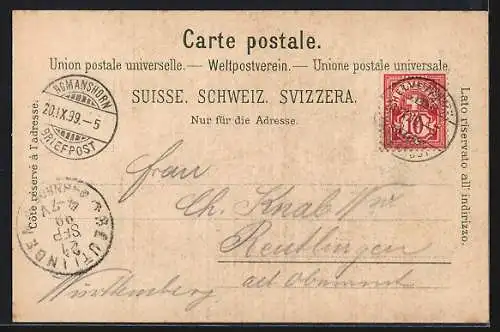 Carte postale.
Union postale universelle. — Weltpostverein. — Unione postale universale
SUISSE. SCHWEIZ. SVIZZERA.
Nur für die Adresse.
Côté réservé à l'adresse.
Lato riservato all' indirizzo.
ROMANSHORN
20.IX.99.-5
BRIEFPOST
10
REUTLINGEN
BAHNHOF
6-7 V
99
SEP
21
Frau
Ch. Knab Wwe
Reutlingen
Württemberg